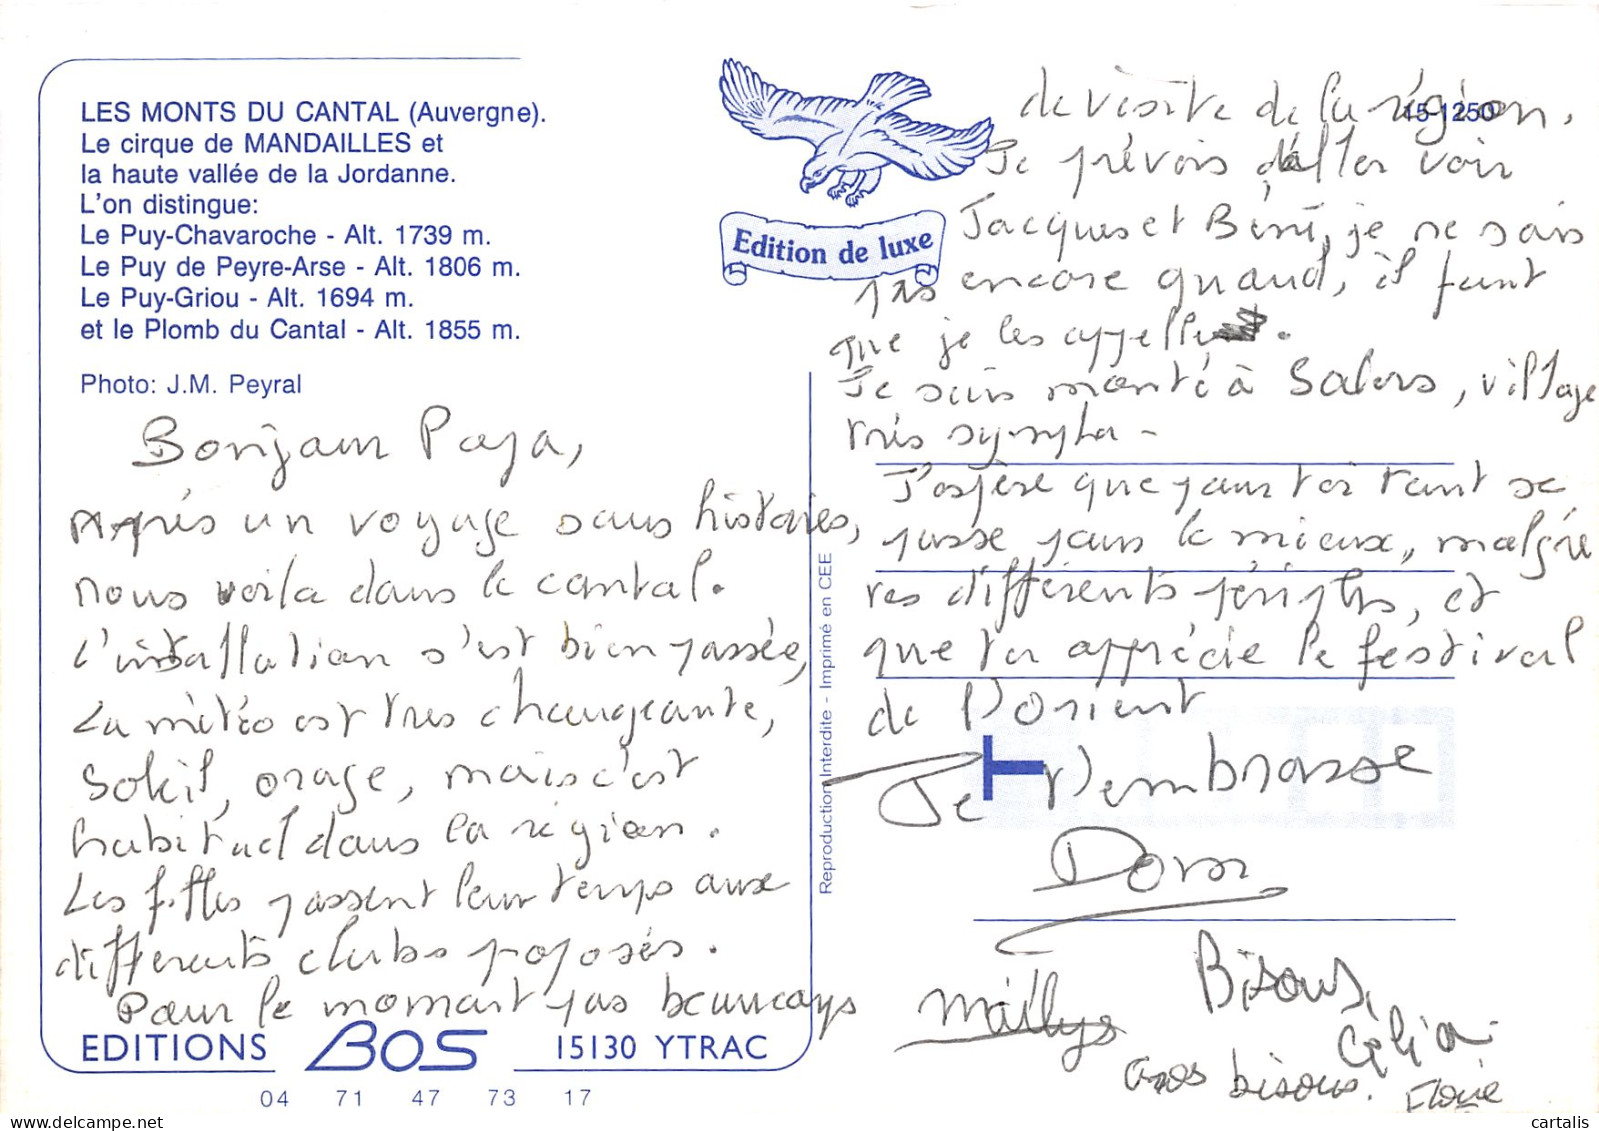 LES MONTS DU CANTAL (Auvergne).
Le cirque de MANDAILLES et
la haute vallée de la Jordanne.
L'on distingue:
Le Puy-Chavaroche - Alt. 1739 m.
Le Puy de Peyre-Arse - Alt. 1806 m.
Le Puy-Griou - Alt. 1694 m.
et le Plomb du Cantal - Alt. 1855 m.
Photo: J.M. Peyral
Edition de luxe
15-1250
Bonjour Papa,
Après un voyage sans histoires,
nous voila dans le cantal.
L'installation s'est bien passée,
La météo est tres changeante,
Soleil, orage, mais c'est
habituel dans la région.
Les filles passent leur temps aux
différents clubs proposés.
Pour le moment pas beaucoups
de visite de la région.
Je prévois d'aller voir
Jacques et Béné, je ne sais
pas encore quand, il faut
que je les appelle.
Je suis monté à Salers, village
très sympha -
J'espère que pour toi tout se
passe pour le mieux, malgré
tes différents périples, et
que tu apprécie le festival
de l'orient
Je t'embrasse
Dom
Maïllys
Bisous,
Célia
Gros bisous. Elovie
EDITIONS BOS 15130 YTRAC
04 71 47 73 17
Reproduction Interdite - Imprimé en CEE
cartalis